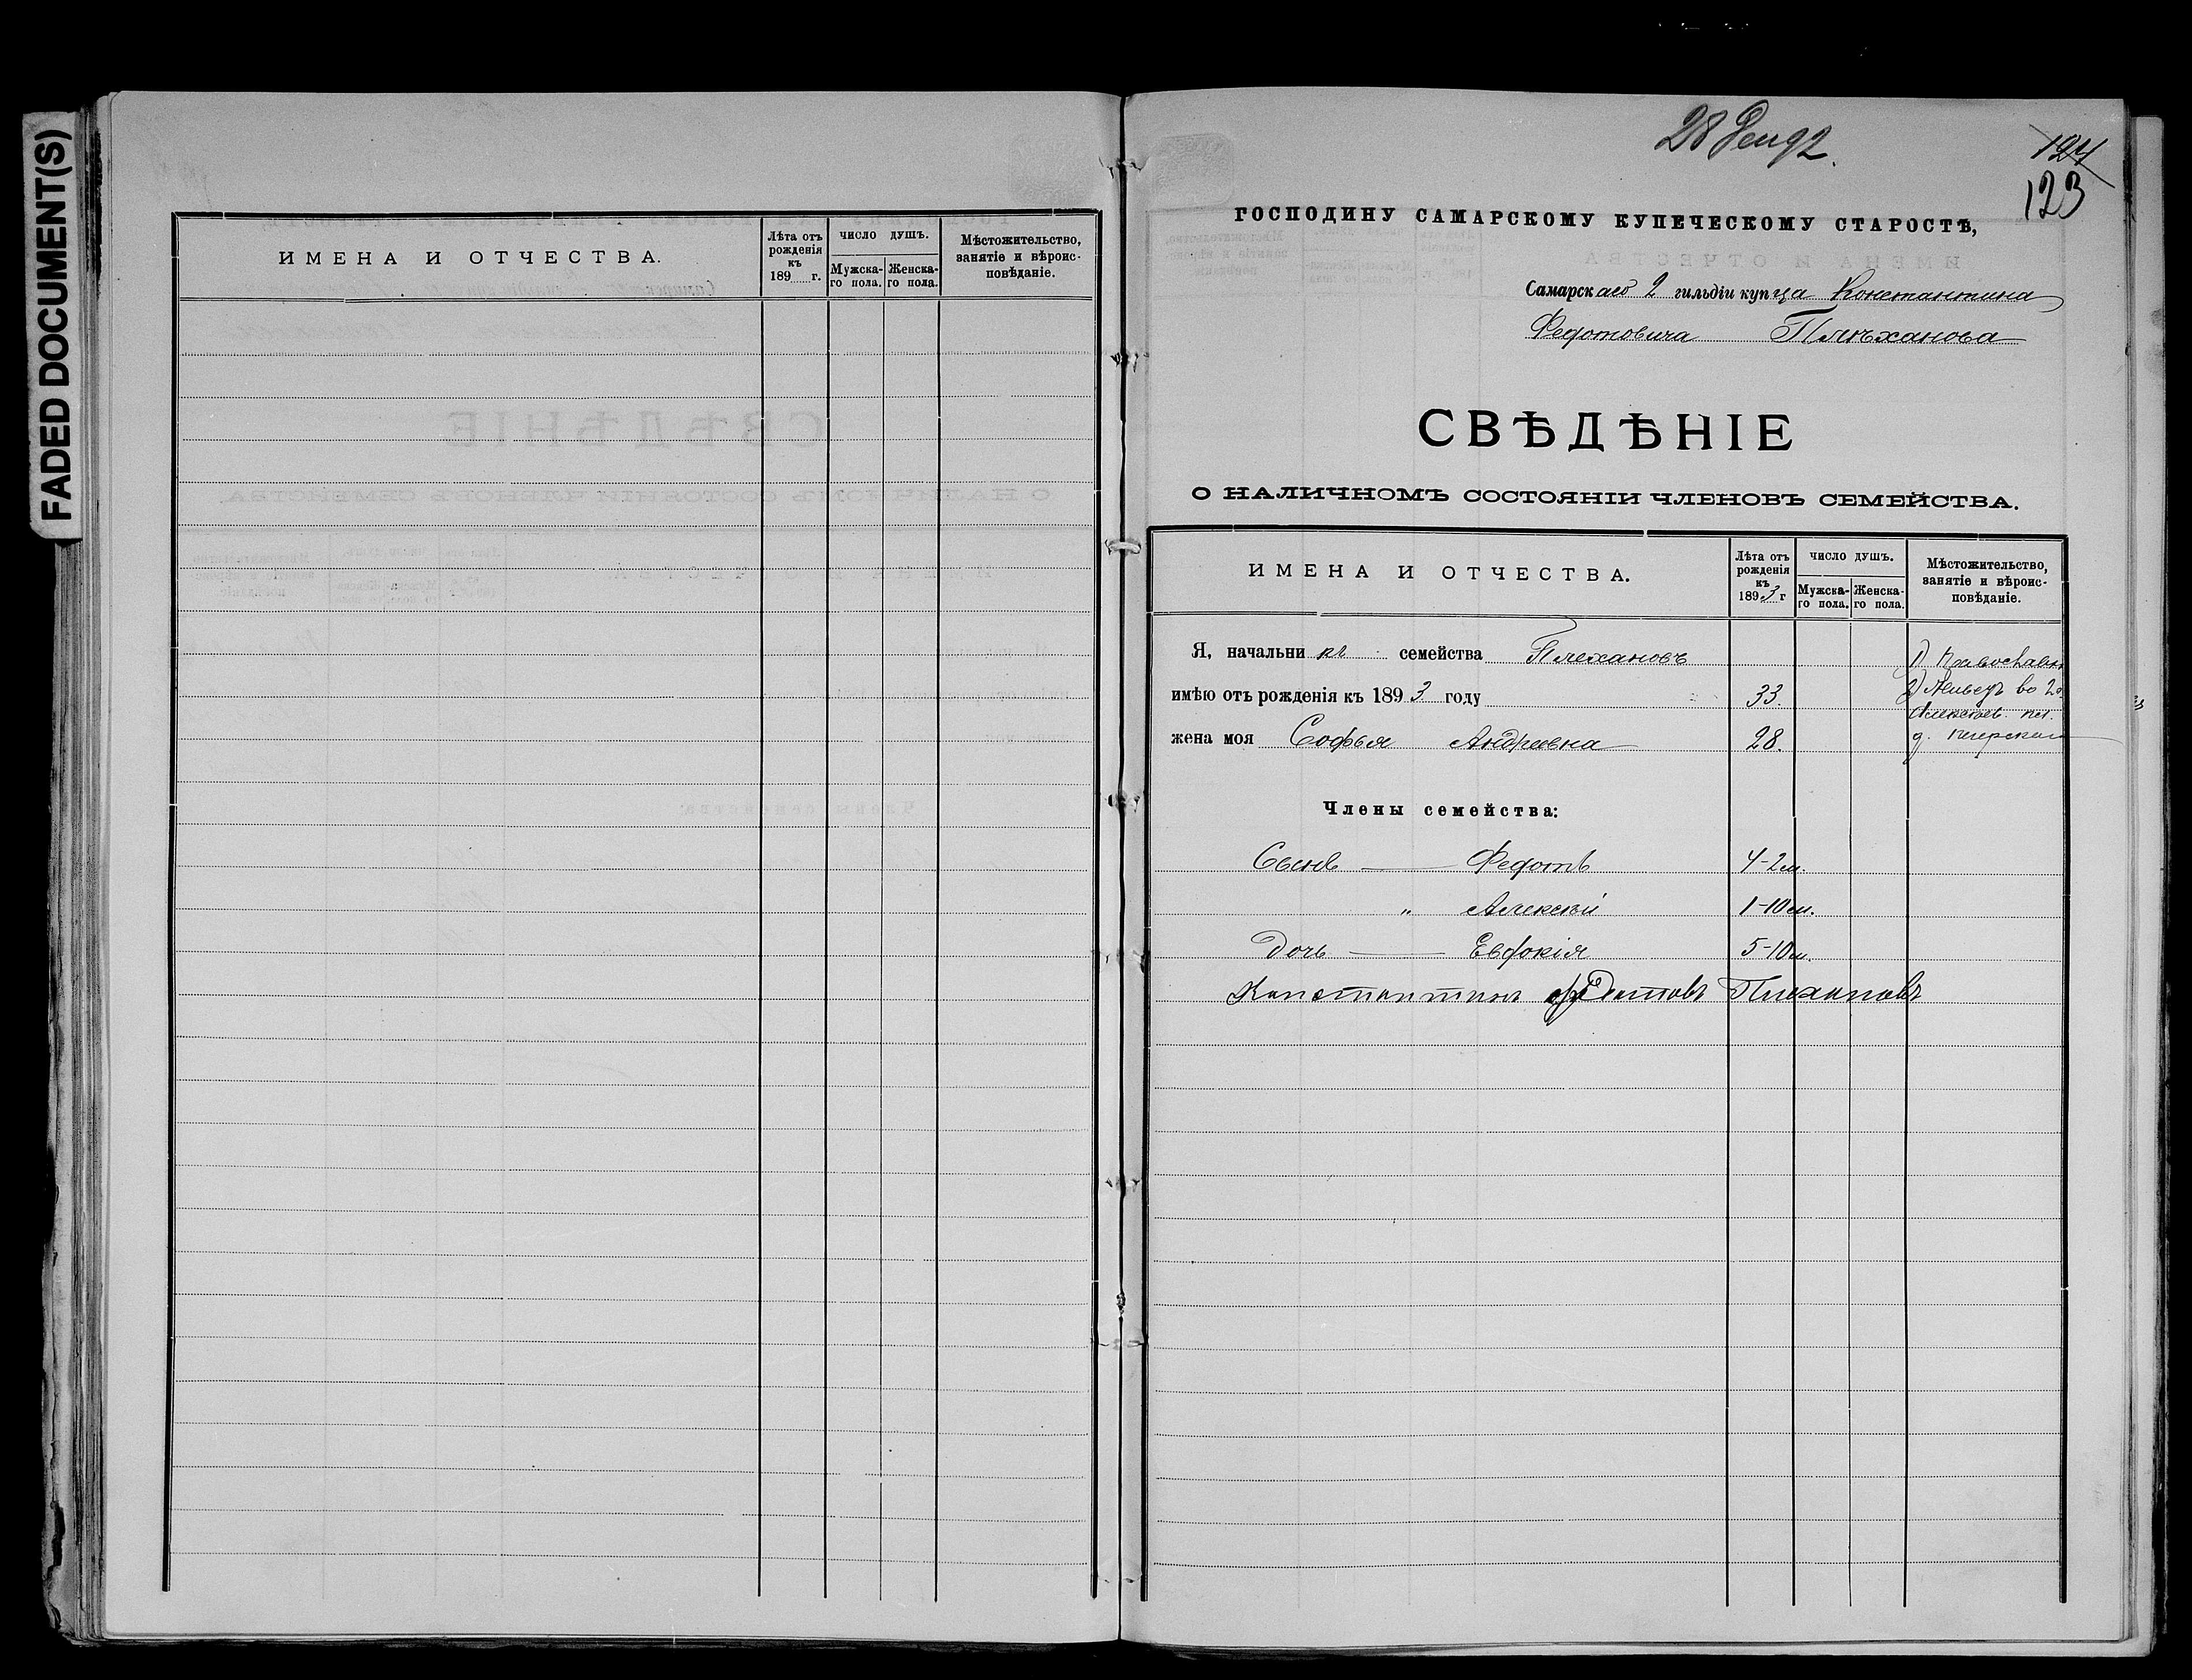 FADED DOCUMENT(S)
ИМЕНА И ОТЧЕСТВА.
Лѣта отъ рожденія къ 189 г.
ЧИСЛО ДУШЪ.
Мужска-го пола.
Женска-го пола.
Мѣстожительство, занятіе и вѣроис-повѣданіе.
28 Дек 92.
124
123
ГОСПОДИНУ САМАРСКОМУ КУПЕЧЕСКОМУ СТАРОСТѢ,
Самарскаго 2 гильдіи купца Константина
Федотовича Плѣханова
СВѢДѢНІЕ
О НАЛИЧНОМЪ СОСТОЯНІИ ЧЛЕНОВЪ СЕМЕЙСТВА.
ИМЕНА И ОТЧЕСТВА.
Лѣта отъ рожденія къ 1893 г
ЧИСЛО ДУШЪ.
Мужска-го пола.
Женска-го пола.
Мѣстожительство, занятіе и вѣроис-повѣданіе.
Я, начальникъ семейства Плехановъ 1) Православн
имѣю отъ рожденія къ 1893 году 33. 2) Живетъ во 2й
Алексѣев. пл.
жена моя Софья Андревна 28. д.
Члены семейства:
Сынъ — Федотъ 4-2м.
" Алексѣй 1-10м.
Дочь — Евдокія 5-10м.
Константинъ Федотовъ Плехановъ